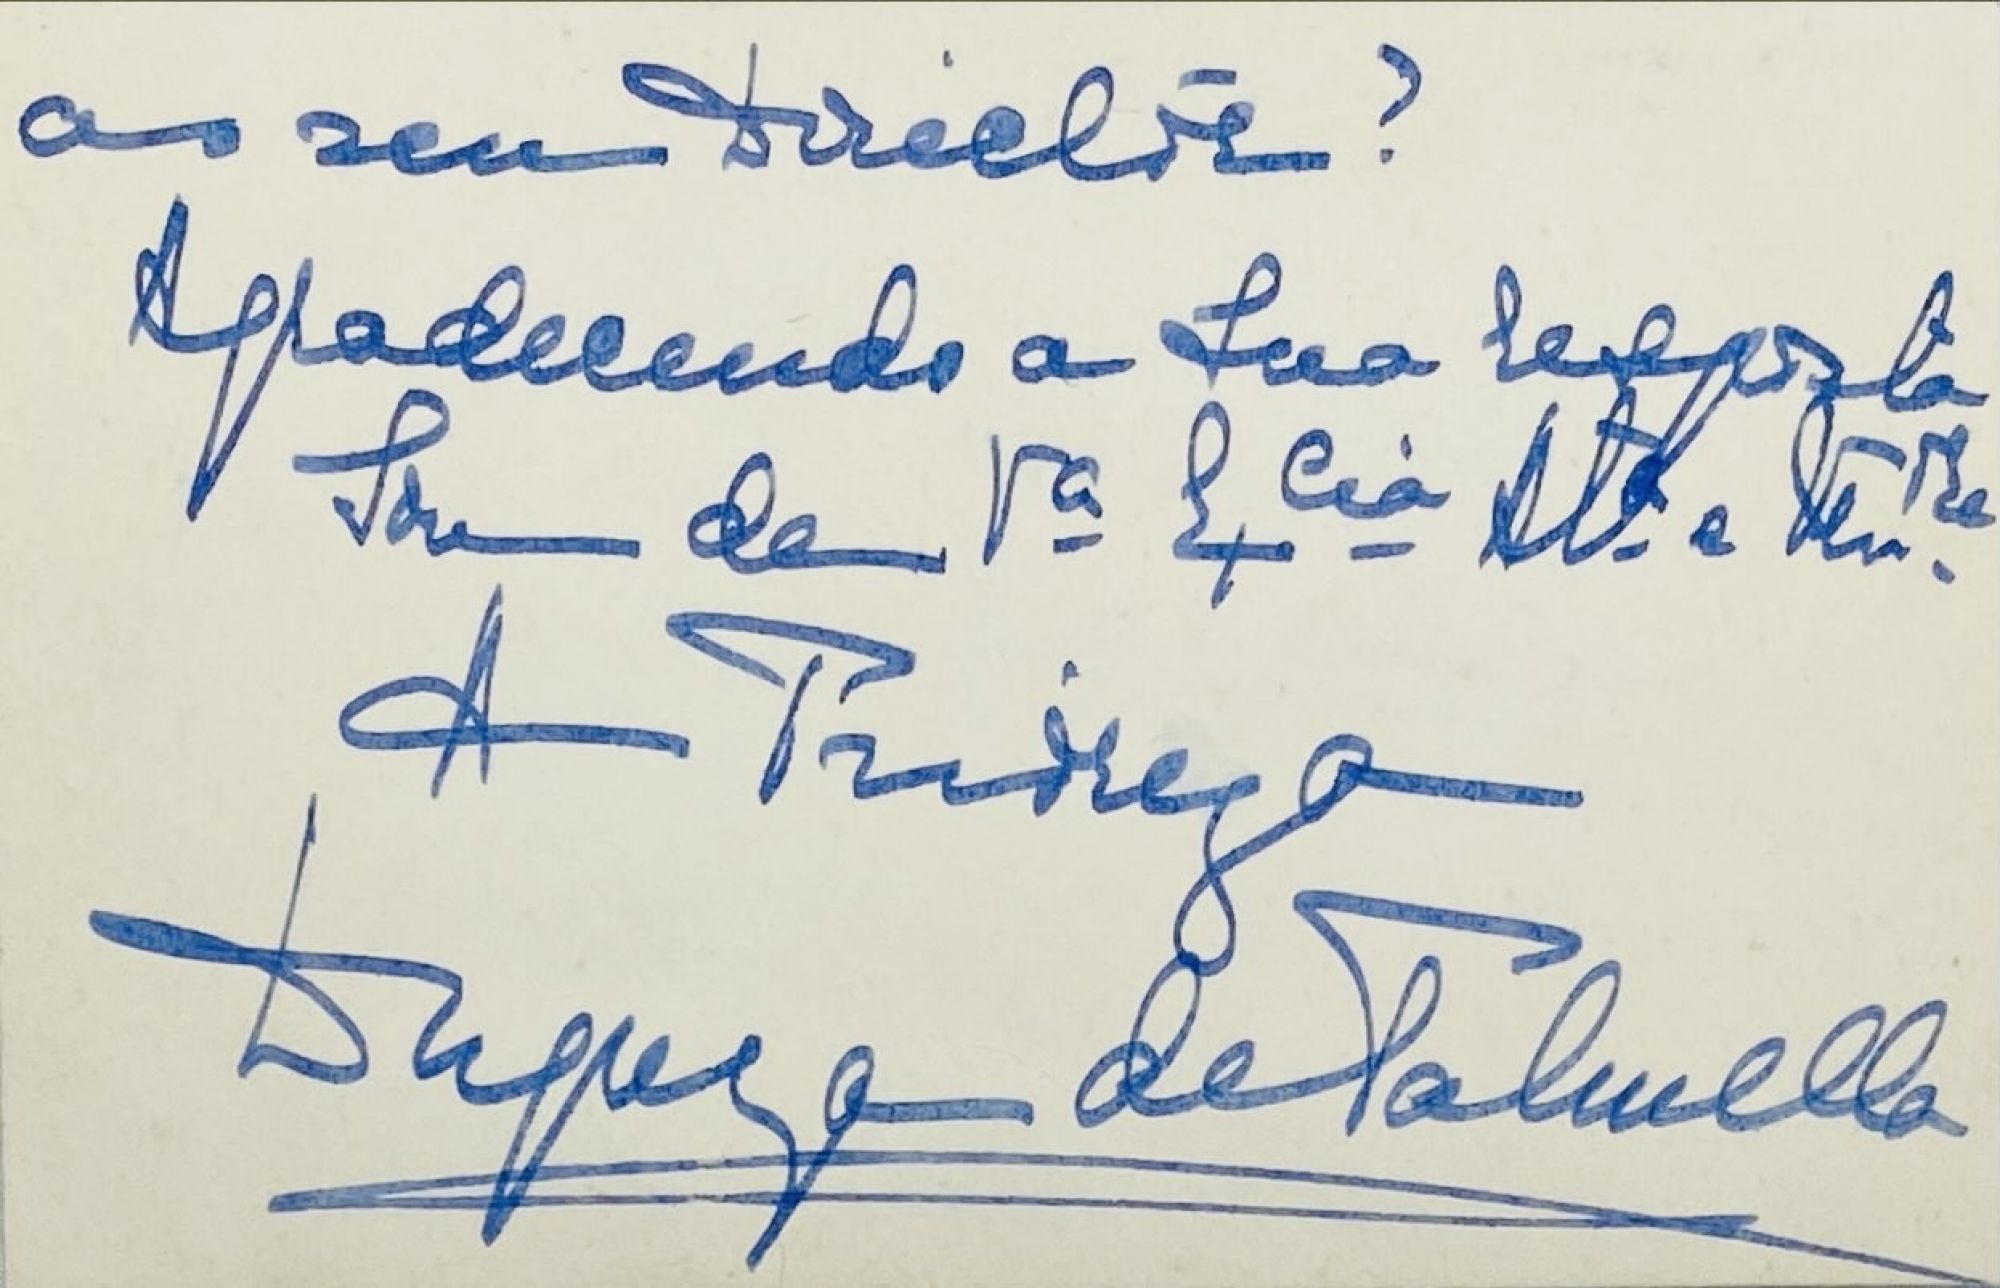 ao seu Director?
Agradecendo a Sua resposta
Sou de Vª Exᶜⁱᵃ Atª e Venʳᵃ
A Princeza
Duqueza de Palmella